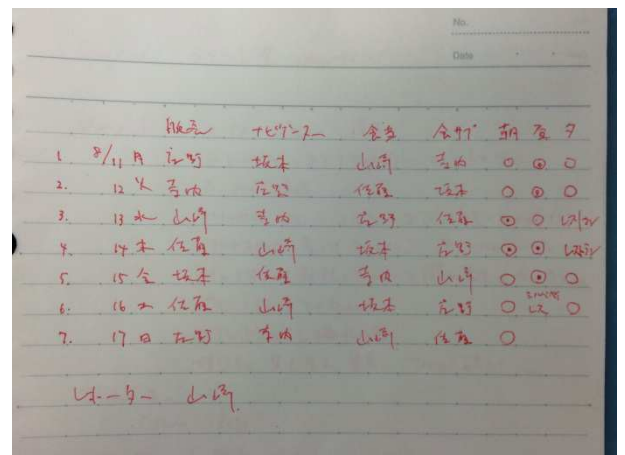 No.
Date
販売 ナビゲーター 食当 食サブ 朝 夜 夕
1. 8/11 月 庄野 坂本 山崎 寺内 ○ ⊙ ○
2. 12 火 寺内 庄野 佐藤 坂本 ○ ⊙ ○
3. 13 水 山崎 寺内 庄野 佐藤 ⊙ ○
4. 14 木 佐藤 山崎 坂本 庄野 ⊙ ⊙
5. 15 金 坂本 佐藤 寺内 山崎 ○ ⊙ ○
6. 16 佐藤 山崎 坂本 庄野 ○ ○
7. 17 日 庄野 寺内 山崎 佐藤 ○
レポーター 山崎